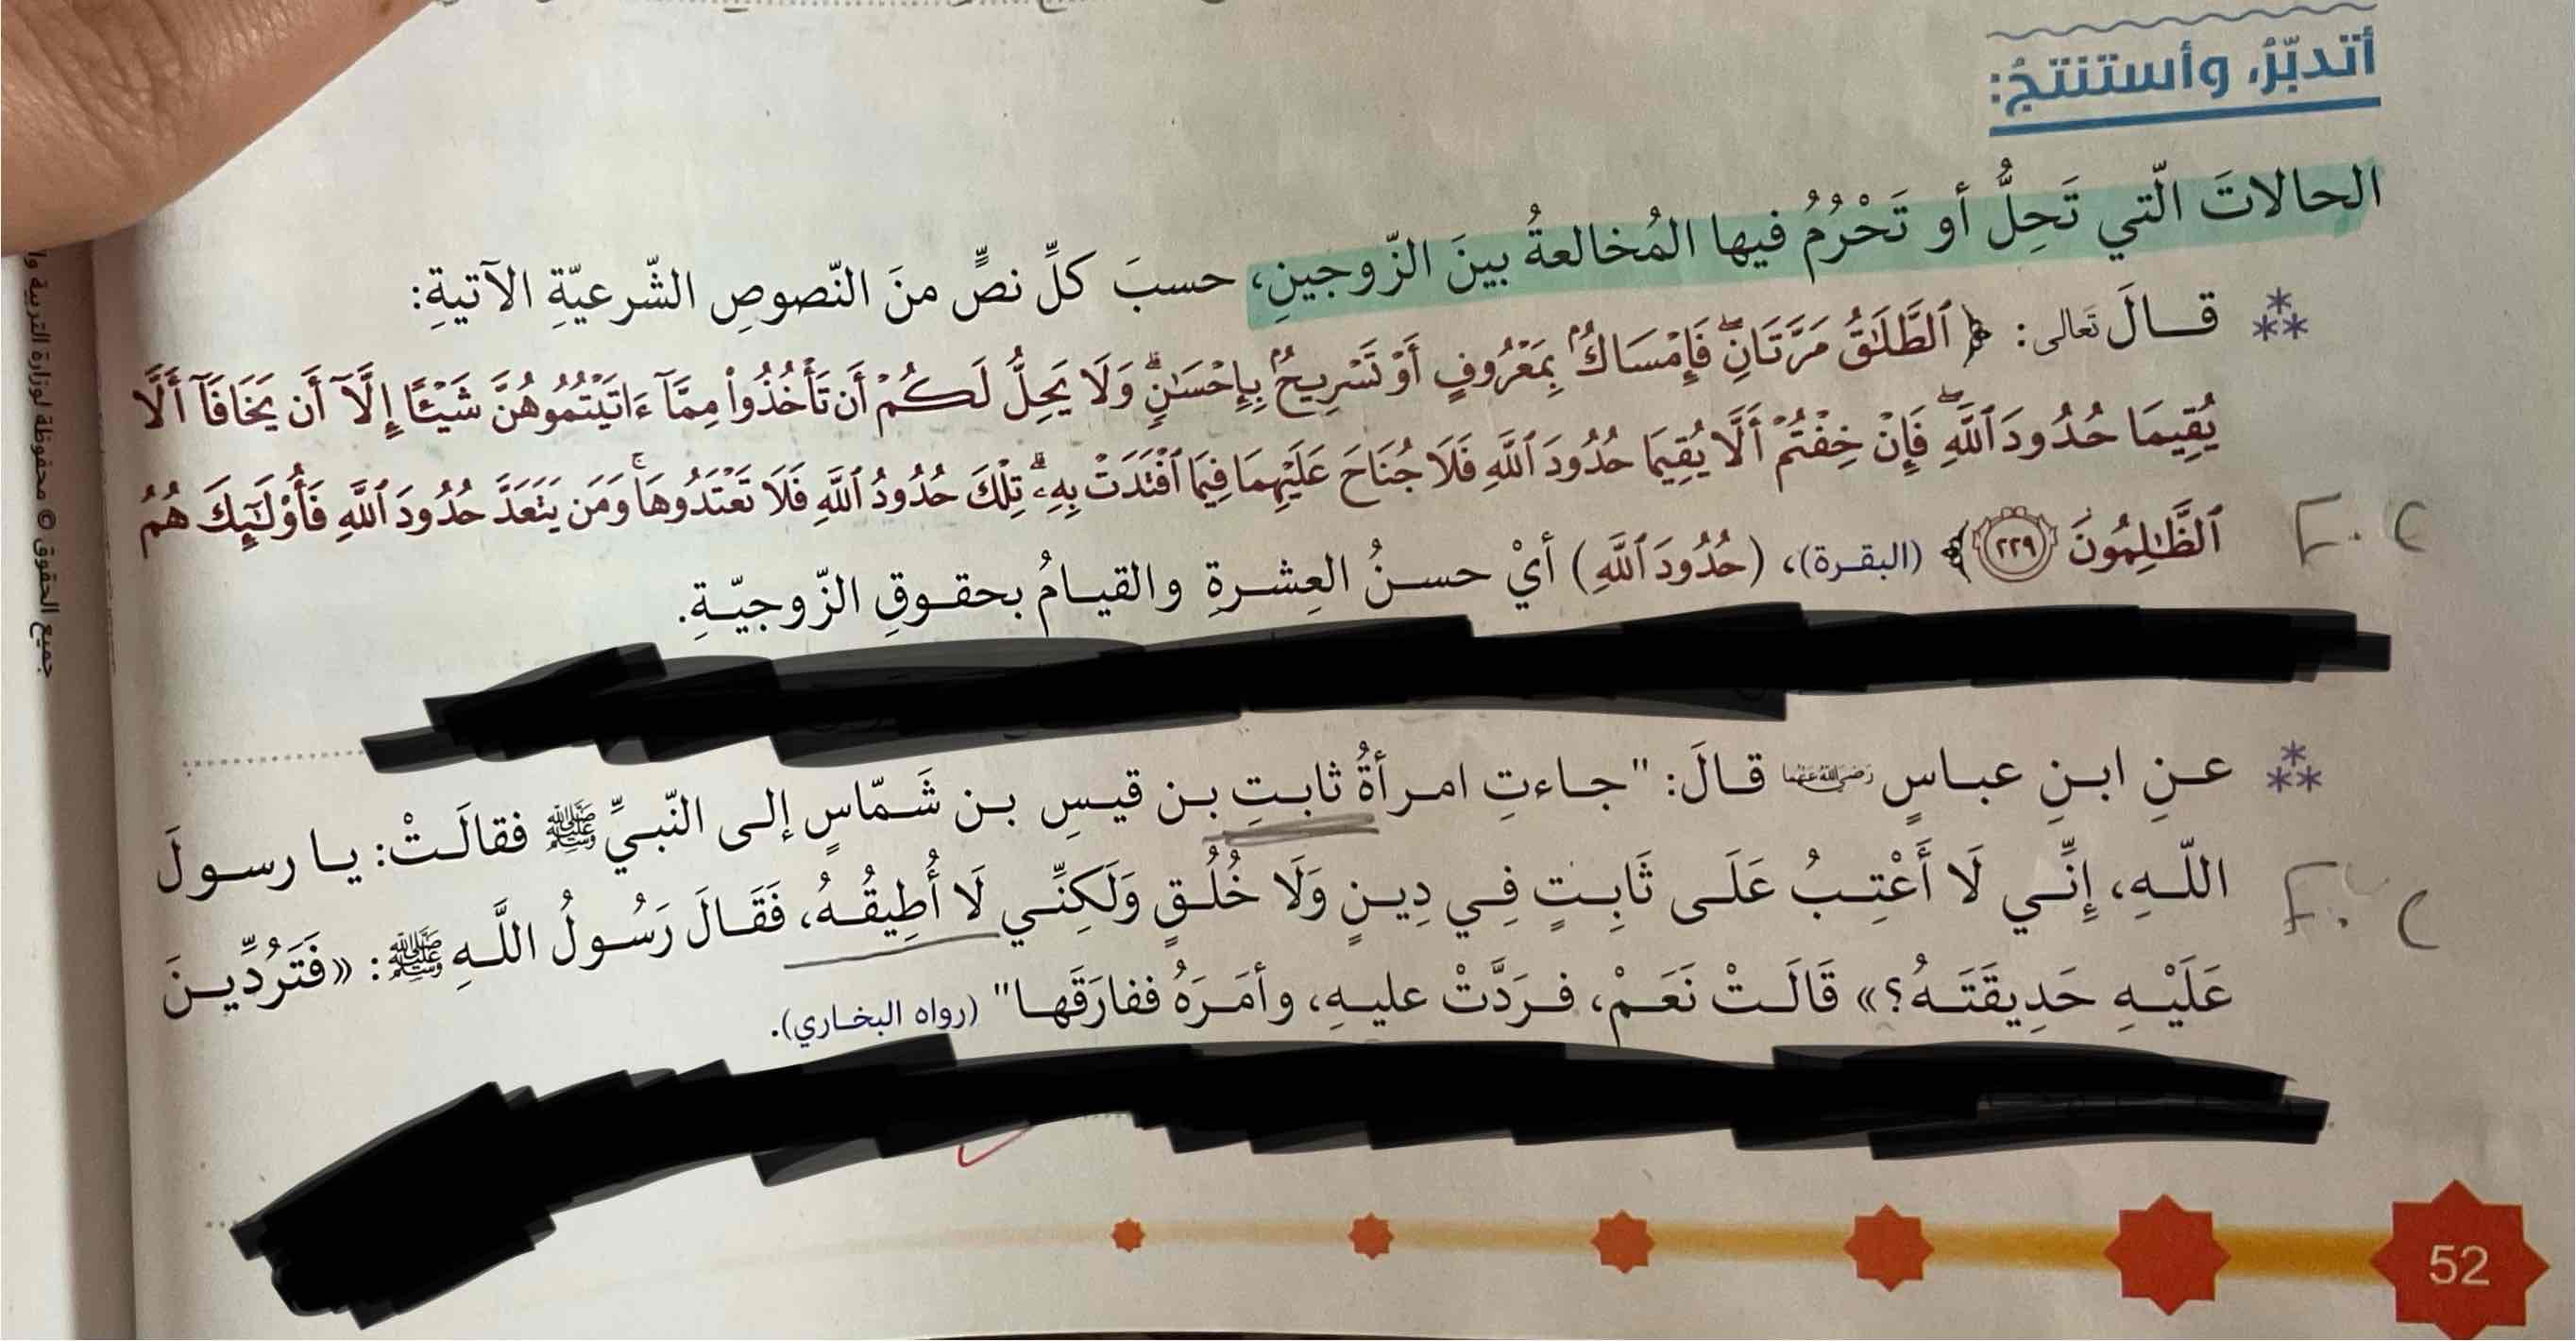 أتدبّرُ، وأستنتجُ:
الحالاتَ الّتي تَحِلُّ أو تَحْرُمُ فيها المُخالعةُ بينَ الزّوجينِ، حسبَ كلِّ نصٍّ منَ النّصوصِ الشّرعيّةِ الآتيةِ:
قالَ تَعالى: ﴿ ٱلطَّلَٰقُ مَرَّتَانِۖ فَإِمۡسَاكُۢ بِمَعۡرُوفٍ أَوۡ تَسۡرِيحُۢ بِإِحۡسَٰنٖۗ وَلَا يَحِلُّ لَكُمۡ أَن تَأۡخُذُواْ مِمَّآ ءَاتَيۡتُمُوهُنَّ شَيۡـًٔا إِلَّآ أَن يَخَافَآ أَلَّا
يُقِيمَا حُدُودَ ٱللَّهِۖ فَإِنۡ خِفۡتُمۡ أَلَّا يُقِيمَا حُدُودَ ٱللَّهِ فَلَا جُنَاحَ عَلَيۡهِمَا فِيمَا ٱفۡتَدَتۡ بِهِۦۗ تِلۡكَ حُدُودُ ٱللَّهِ فَلَا تَعۡتَدُوهَاۚ وَمَن يَتَعَدَّ حُدُودَ ٱللَّهِ فَأُوْلَٰٓئِكَ هُمُ
ٱلظَّٰلِمُونَ ٢٢٩ ﴾ (البقرة)، (حُدُودَ ٱللَّهِ) أيْ حسنُ العِشرةِ والقيامُ بحقوقِ الزّوجيّةِ.
عنِ ابنِ عباسٍ رضي الله عنهما قالَ: "جاءتِ امرأةُ ثابتِ بن قيسِ بن شَمّاسٍ إلى النّبيِّ ﷺ فقالَتْ: يا رسولَ
اللّهِ، إِنِّي لَا أَعْتِبُ عَلَى ثَابِتٍ فِي دِينٍ وَلَا خُلُقٍ وَلَكِنِّي لَا أُطِيقُهُ، فَقَالَ رَسُولُ اللَّهِ ﷺ: «فَتَرُدِّينَ
عَلَيْهِ حَدِيقَتَهُ؟» قَالَتْ نَعَمْ، فرَدَّتْ عليهِ، وأمَرَهُ ففارَقَها" (رواه البخاري).
52